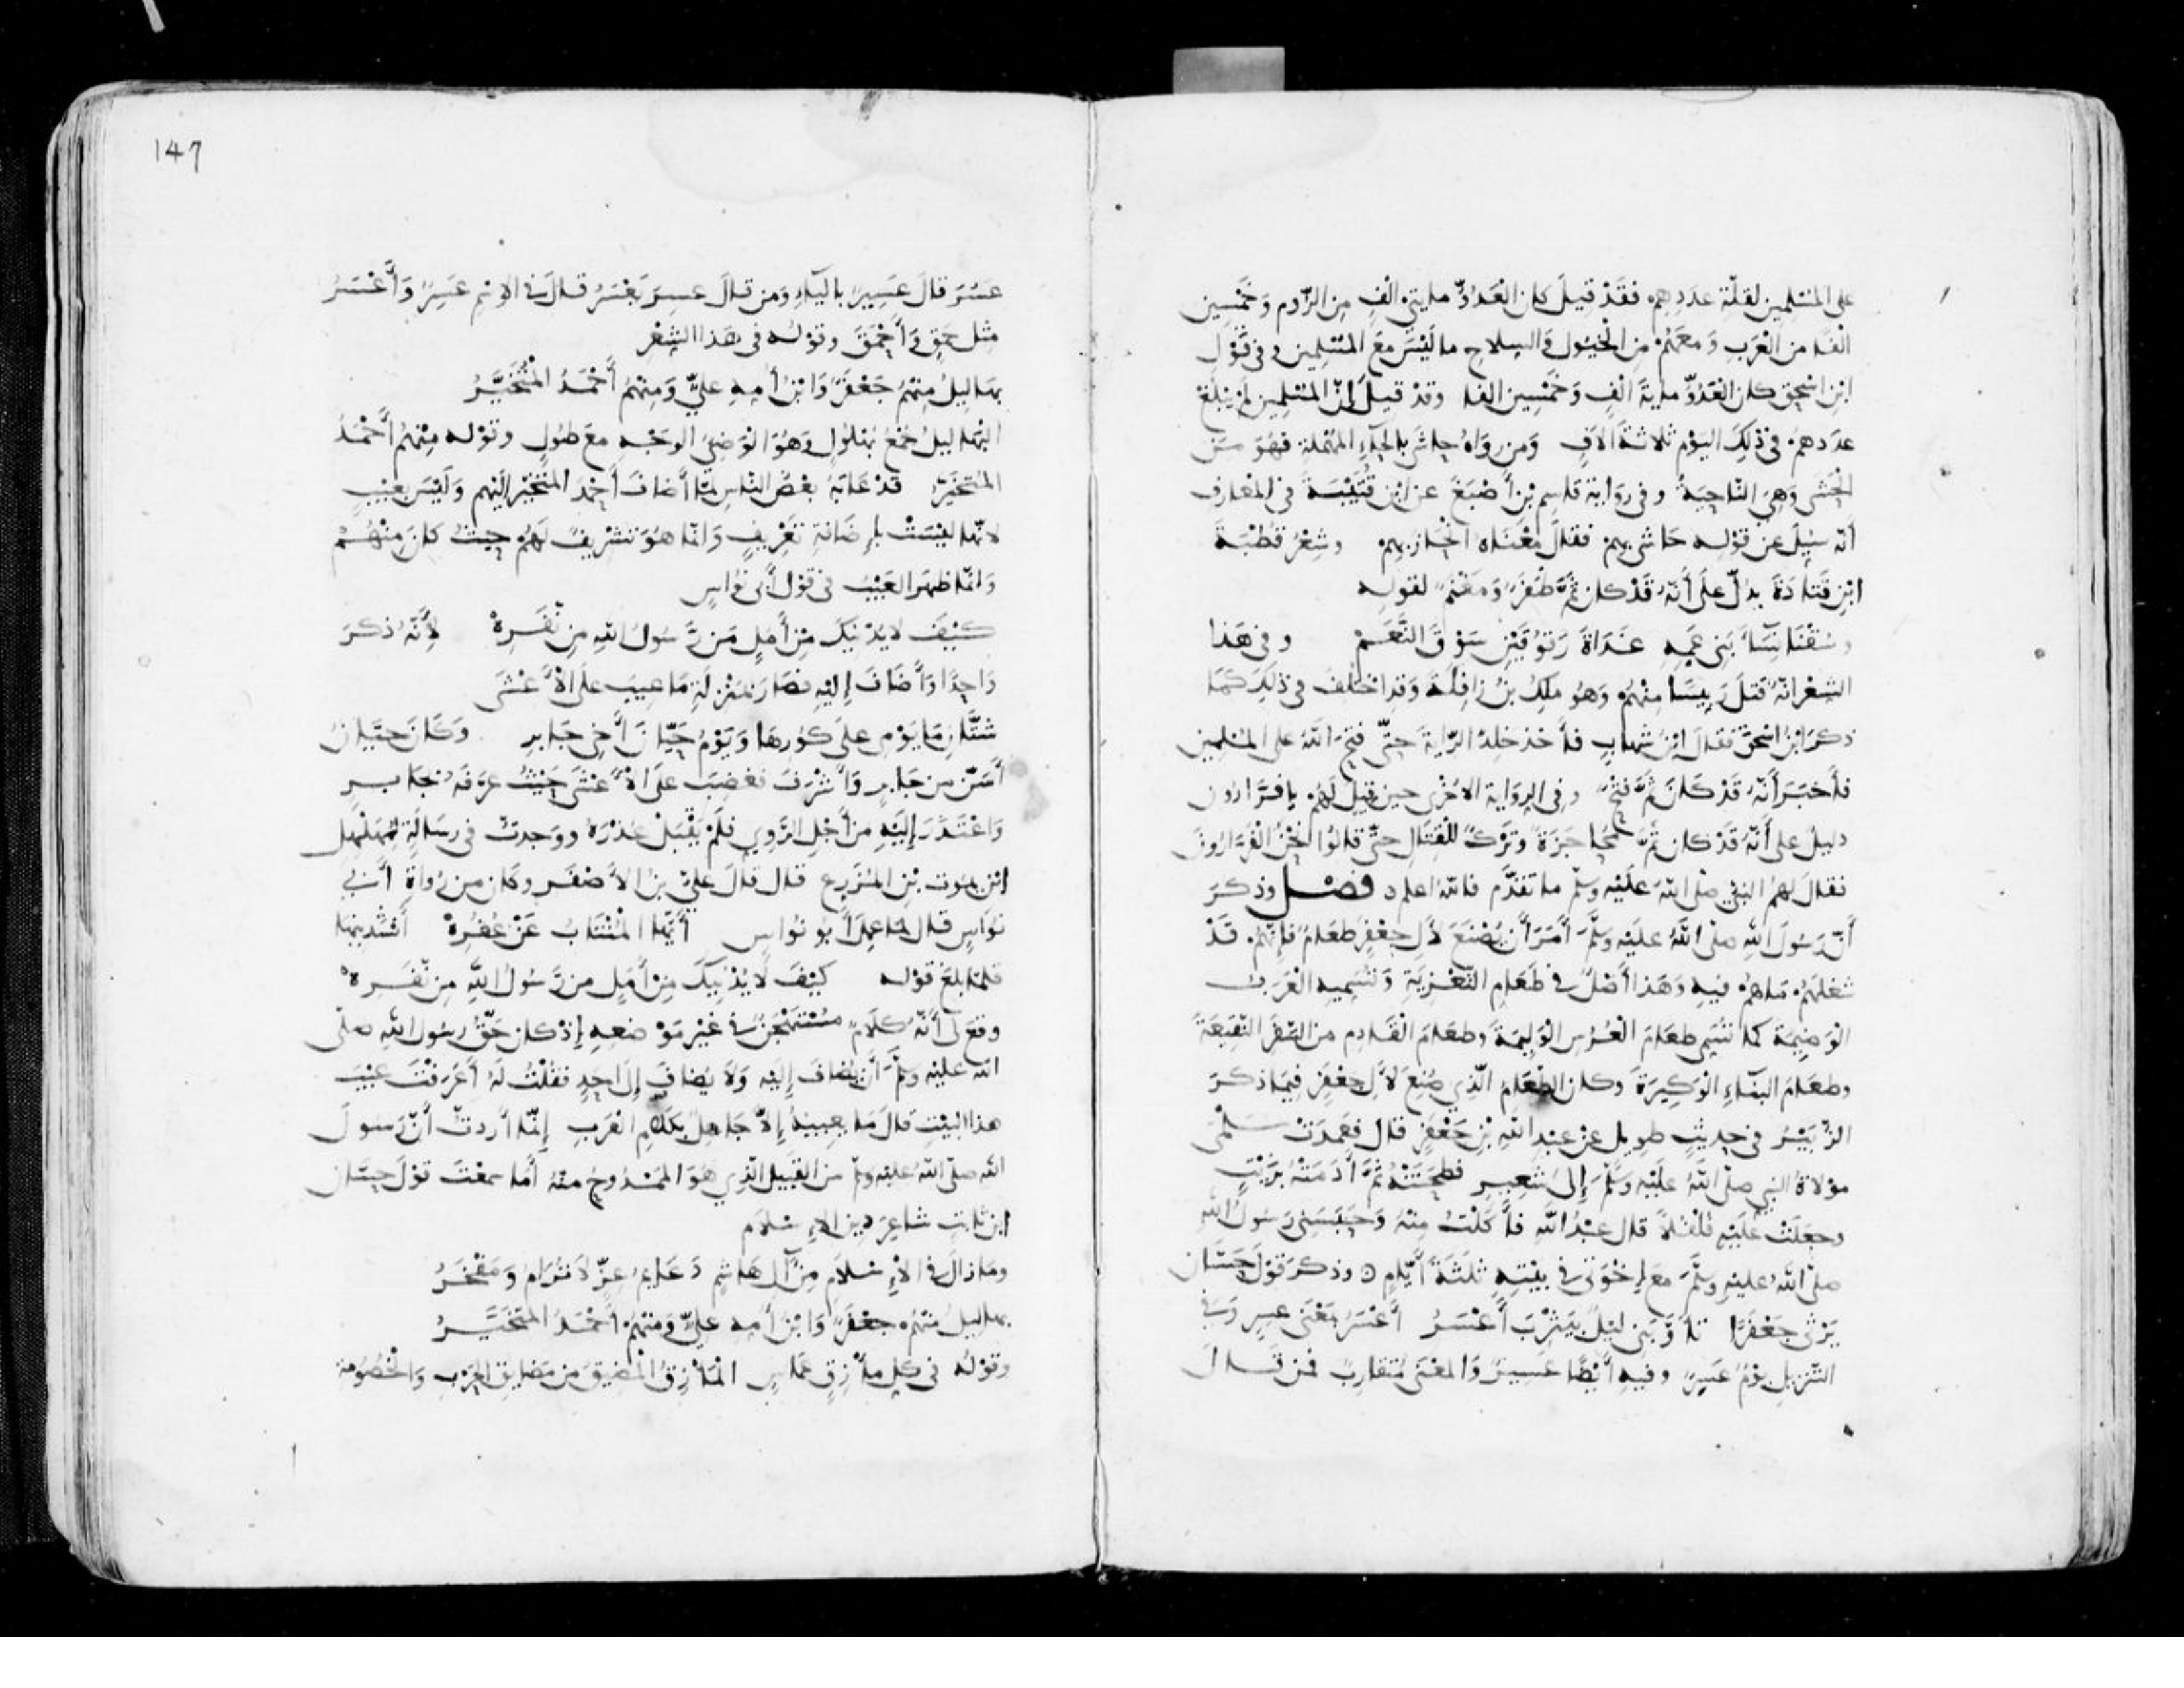 على المسلمين لقلة عددهم فقد قيل كان العدو مايتي الف من الروم وخمسين
الفا من العرب ومعهم من الخيول والسلاح ما ليس مع المسلمين وفي قول
ابن اسحق كان العدو ماية الف وخمسين الفا وقد قيل إن المسلمين لم يبلغ
عددهم في ذلك اليوم ثلاثة الاف ومن رواه حاشى بالحاء المهملة فهو من
الحشى وهي الناحية وفي رواية قاسم بن أصبغ عن ابن قتيبة في المعارف
أنه سيل عن قوله حاشى بهم فقال معناه انحاز بهم وشعر قطبة
ابن قتادة يدل على أنه قد كان ثم ظفر ومغنم لقوله
وسقنا نساء بني عمه غداة رقوقين سوق النعم وفي هذا
الشعر انه قتل رييسا منهم وهو ملك بن زافلة وقد اختلف في ذلك كما
ذكر ابن اسحق فقال ابن شهاب فأخذ خلد الراية حتى فتح الله على المسلمين
فأخبر أنه قد كان ثم فتح وفي الرواية الاخرى حين قيل لهم يا فرارون
دليل على أنه قد كان ثم محاجزة وترك للقتال حتى قالوا نحن الفرارون
فقال لهم النبي صلى الله عليه وسلم ما تقدم فالله اعلم فصل وذكر
أن رسول الله صلى الله عليه وسلم أمر أن يصنع لآل جعفر طعام فإنهم قد
شغلهم ماهم فيه وهذا أصل في طعام التعزية وتسميه العرب
الوضيمة كما تسمى طعام العرس الوليمة وطعام القادم من السفر النقيعة
وطعام البناء الوكيرة وكان الطعام الذي صنع لآل جعفر فيما ذكر
الزبير في حديث طويل عن عبد الله بن جعفر قال فعمدت سلمى
مولاة النبي صلى الله عليه وسلم إلى شعير فطحنته ثم أدمته بزيت
وجعلت عليه فلفلا قال عبد الله فأكلت منه وحبسني رسول الله
صلى الله عليه وسلم مع إخوتي في بيته ثلثة أيام وذكر قول حسان
يرثي جعفرا تأوبني ليل بيثرب أعسر أعسر بمعنى عسر وفي
التنزيل يوم عسر وفيه أيضا عسير والمعنى متقارب فمن قال
147
عسر قال عسير بالياء ومن قال عسر يعسر قال في الاسم عسر وأعسر
مثل حمق وأحمق وقوله في هذا الشعر
بهاليل منهم جعفر وابن أمه علي ومنهم أحمد المتخير
البهاليل جمع بهلول وهو الوضيء الوجه مع طول وقوله منهم أحمد
المتخير قد عابه بعض الناس لما أضاف أحمد المتخير إليهم وليس بعيب
لانها ليست بإضافة تعريف وانما هو تشريف لهم حيث كان منهم
وانما ظهر العيب في قول أبي نواس
كيف لا يدنيك من أمل من رسول الله من نفره لأنه ذكر
واحدا وأضاف إليه فصار بمنزلة ما عيب على الأعشى
شتان ما يومي على كورها ويوم حيان أخي جابر وكان حيان
أسن من جابر وأشرف فغضب على الأعشى حيث عرفه بجابر
واعتذر إليه من أجل الروي فلم يقبل عذره ووجدت في رسالة لمهلهل
ابن يموت بن المزرع قال قال علي بن الأصفر وكان من رواة أبي
نواس قال لما عمل أبو نواس أيها المنتاب عن عفره أنشدنيها
فلما بلغ قوله كيف لا يدنيك من أمل من رسول الله من نفره
وقع لي أنه كلام مستهجن في غير موضعه إذ كان حق رسول الله صلى
الله عليه وسلم أن يضاف إليه ولا يضاف إلى احد فقلت له أعرفت عيب
هذا البيت قال ما يعيبه إلا جاهل بكلام العرب إنما أردت أن رسول
الله صلى الله عليه وسلم من القبيل الذي هو الممدوح منه أما سمعت قول حسان
ابن ثابت شاعر دين الإسلام
وما زال في الإسلام من آل هاشم دعايم عز لا ترام ومفخر
بهاليل منهم جعفر وابن أمه علي ومنهم أحمد المتخير
وقوله في كل مأزق عماس المأزق المضيق من مضايق الحرب والخصومة